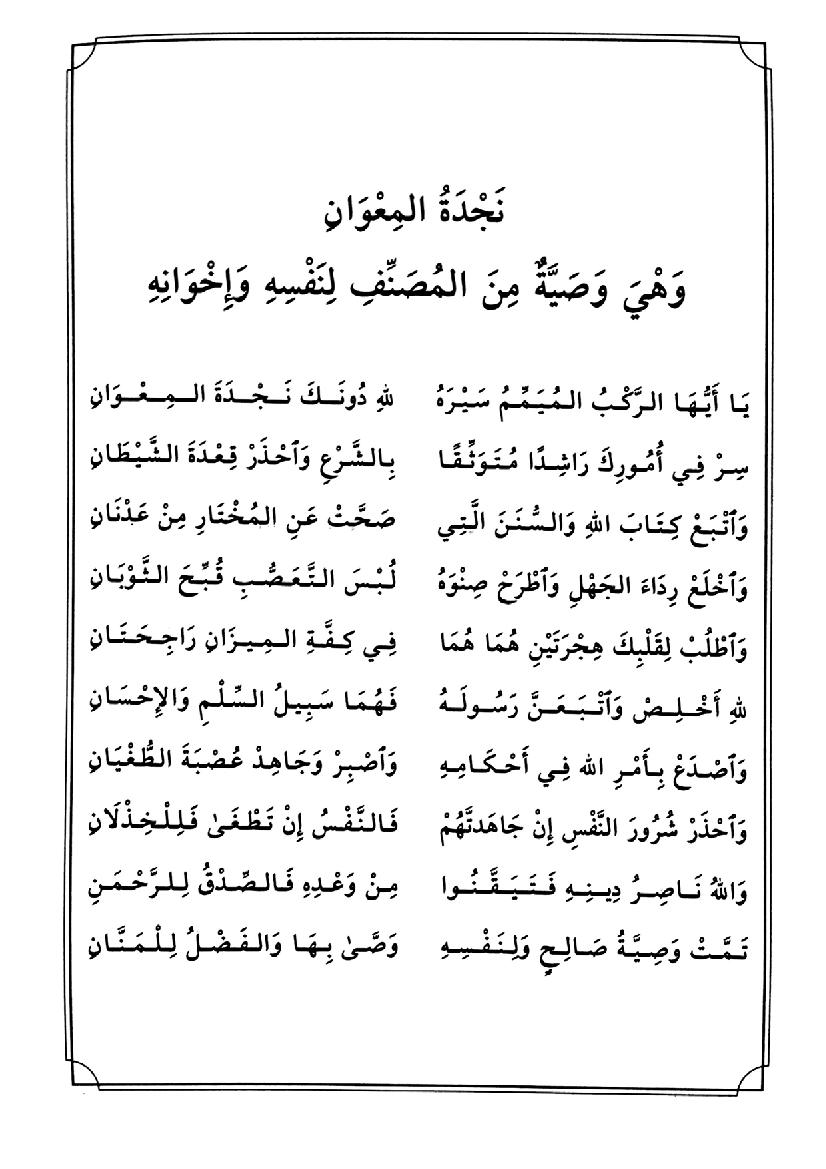 نَجْدَةُ المِعْوَانِ
وَهْيَ وَصَيَّةٌ مِنَ المُصَنِّفِ لِنَفْسِهِ وَإِخْوَانِهِ
يَا أَيُّهَا الرَّكْبُ المُيَمِّمُ سَيْرَهُ لِلهِ دُونَكَ نَجْدَةَ المِعْوَانِ
سِرْ فِي أُمُورِكَ رَاشِدًا مُتَوَثِّقًا بِالشَّرْعِ وَٱحْذَرْ قِعْدَةَ الشَّيْطَانِ
وَٱتْبَعْ كِتَابَ اللهِ وَالسُّنَنَ الَّتِي صَحَّتْ عَنِ المُخْتَارِ مِنْ عَدْنَانِ
وَٱخْلَعْ رِدَاءَ الجَهْلِ وَٱطْرَحْ صِنْوَهُ لُبْسَ التَّعَصُّبِ قُبِّحَ الثَّوْبَانِ
وَٱطْلُبْ لِقَلْبِكَ هِجْرَتَيْنِ هُمَا هُمَا فِي كِفَّةِ المِيزَانِ رَاجِحَتَانِ
لِلهِ أَخْلِصْ وَٱتْبَعَنَّ رَسُولَهُ فَهُمَا سَبِيلُ السِّلْمِ وَالإِحْسَانِ
وَٱصْدَعْ بِأَمْرِ الله فِي أَحْكَامِهِ وَٱصْبِرْ وَجَاهِدْ عُصْبَةَ الطُّغْيَانِ
وَٱحْذَرْ شُرُورَ النَّفْسِ إِنْ جَاهَدتَّهُمْ فَالنَّفْسُ إِنْ تَطْغَىٰ فَلِلْخِذْلَانِ
وَاللهُ نَاصِرُ دِينِهِ فَتَيَقَّنُوا مِنْ وَعْدِهِ فَالصِّدْقُ لِلرَّحْمَنِ
تَمَّتْ وَصِيَّةُ صَالِحٍ وَلِنَفْسِهِ وَصَّىٰ بِهَا وَالفَضْلُ لِلْمَنَّانِ